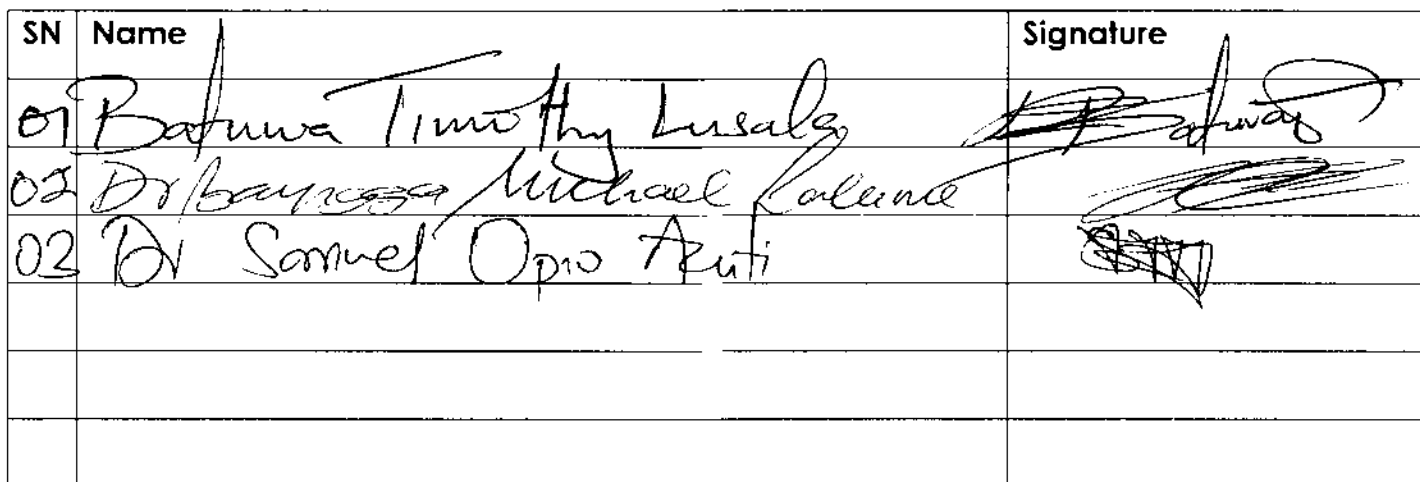 SN Name Signature
01 Batuwa Timothy Lusala Batuwa
02 Dr Michael
03 Dr Samuel Opio Acuti